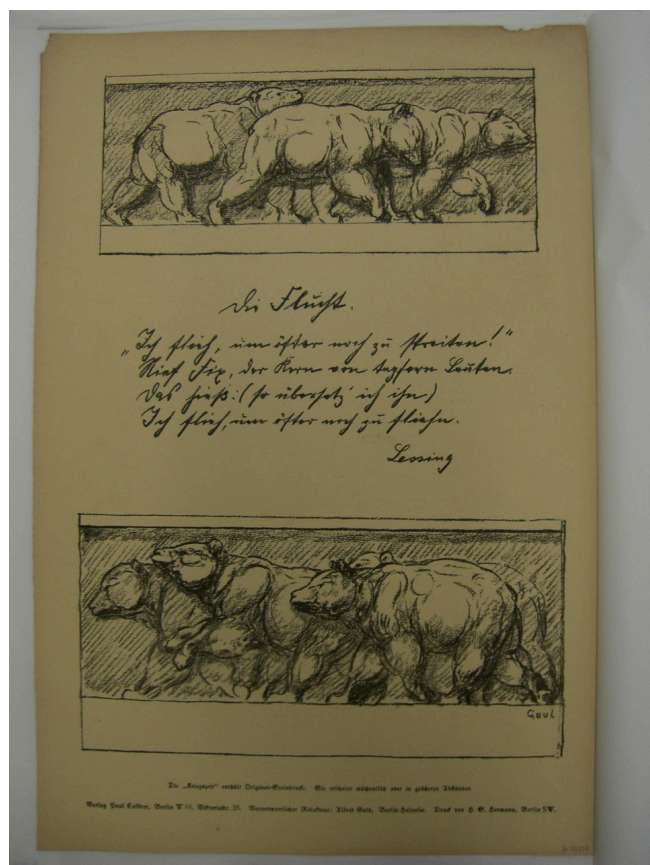 Die Flucht.
„Ich flieh, um öfter noch zu streiten!"
Rief Fix, der Kern von tapfern Leuten.
Das hieß: (so übersetz' ich ihn)
Ich flieh, um öfter noch zu fliehn.
Lessing
Gaul
Die „Kriegszeit" enthält Original-Steindrucke. Sie erscheint wöchentlich oder in größeren Abständen.
Verlag Paul Cassirer, Berlin W 10, Viktoriastr. 35. Verantwortlicher Redakteur: Alfred Gold, Berlin-Halensee. Druck von M. W. Lassally, Berlin SW.